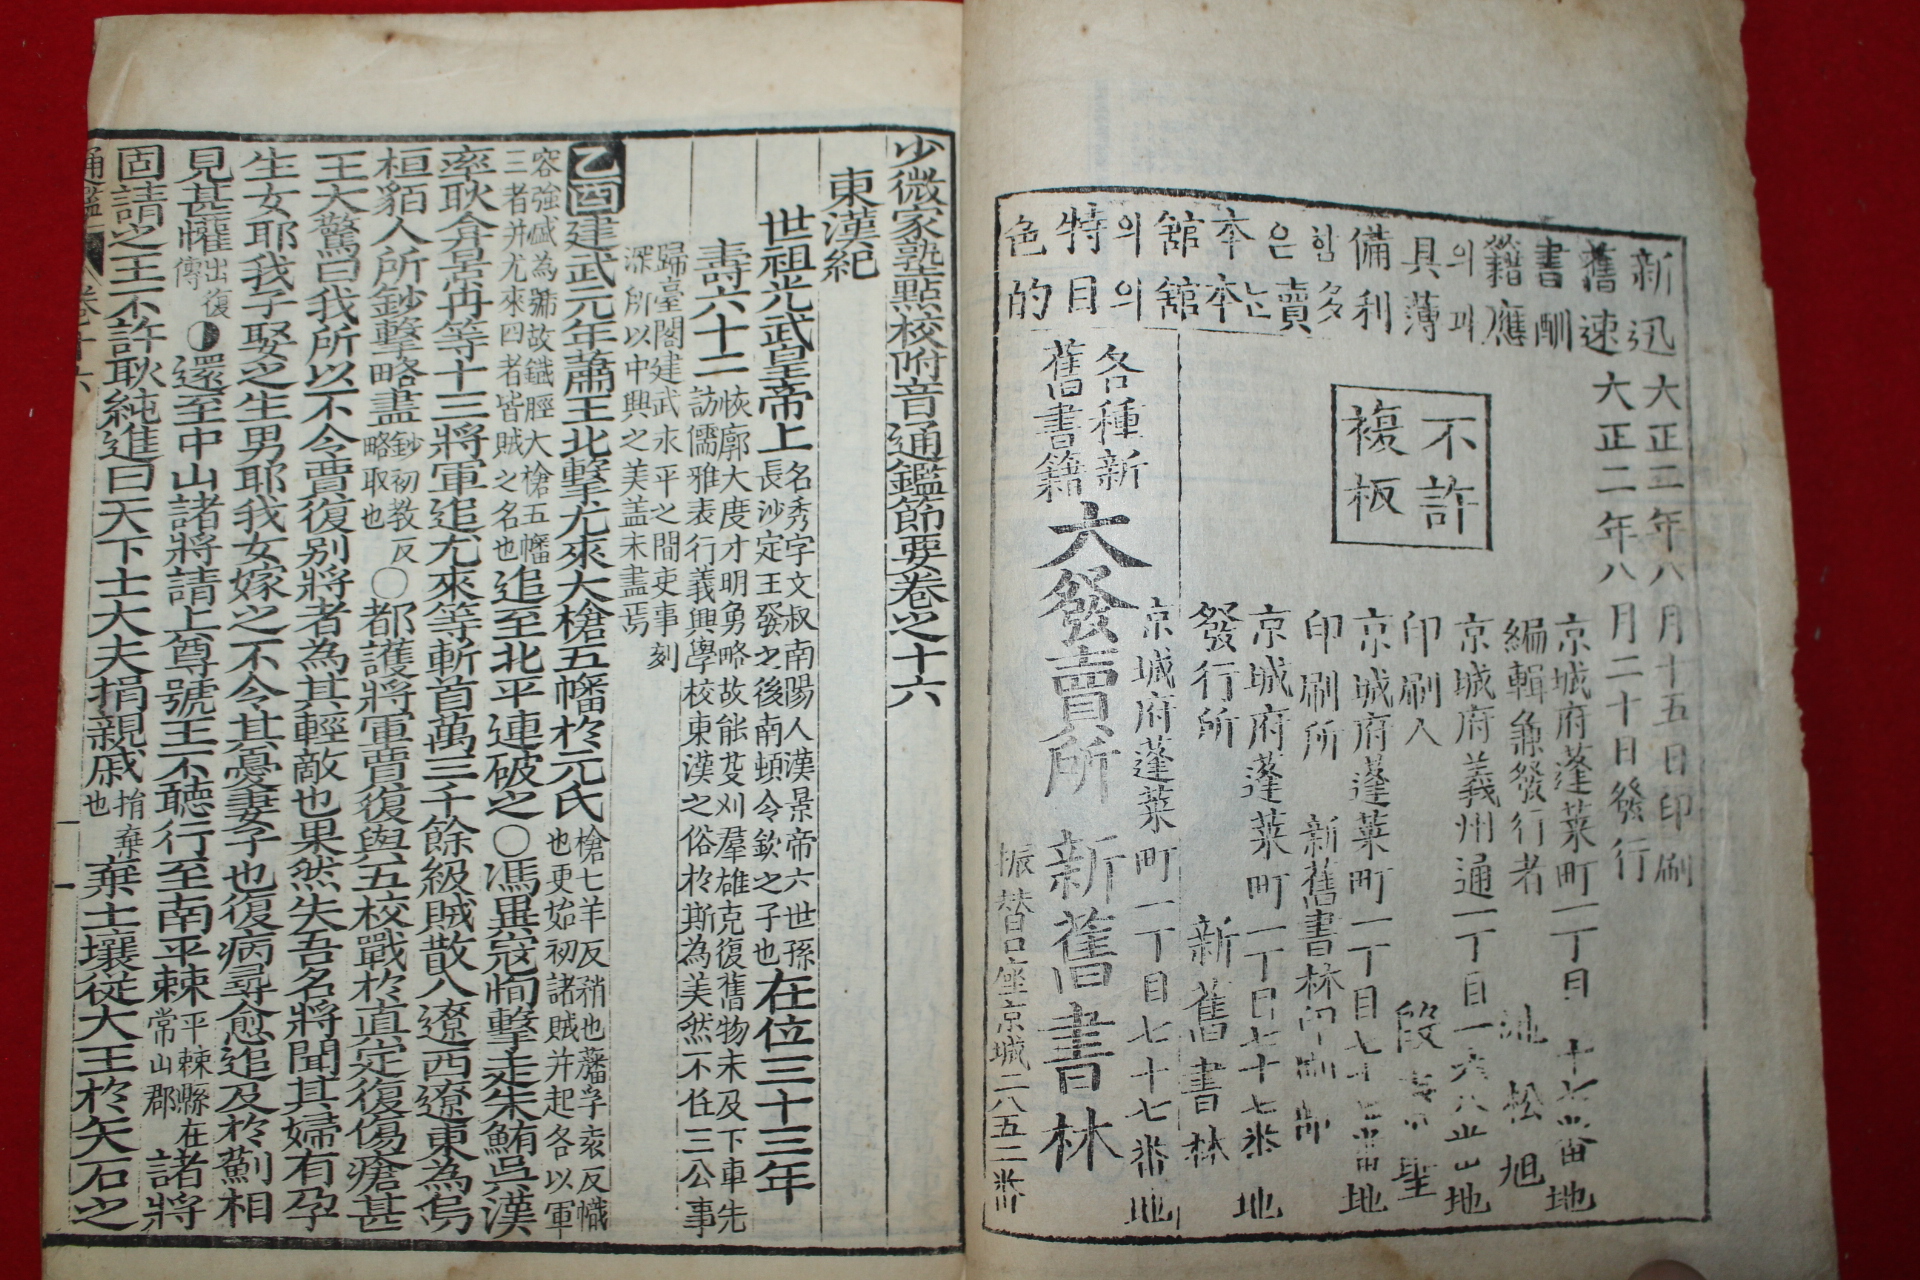 新舊書籍의具備함은本舘의特色
迅速酬應의薄利多賣는本舘의目的
大正二年八月十五日印刷
大正二年八月二十日發行
不許
複板
京城府蓬萊町一丁目七十七番地
編輯兼發行者 池松旭
京城府義州通一丁目
印刷人
京城府蓬萊町一丁目七十七番地
印刷所 新舊書林印刷部
京城府蓬萊町一丁目七十七番地
發行所 新舊書林
京城府蓬萊町一丁目七十七番地
各種新
舊書籍
大發賣所 新舊書林
振替口座京城二八五二番
少微家塾點校附音通鑑節要卷之十六
東漢紀
世祖光武皇帝上名秀字文叔南陽人漢景帝六世孫長沙定王發之後南頓令欽之子也在位三十三年
壽六十二恢廓大度才明勇略故能芟刈羣雄克復舊物未及下車先訪儒雅表行義興學校東漢之俗於斯為美然不任三公事
歸臺閣建武永平之間吏事刻深所以中興之美盖未盡焉
乙酉建武元年蕭王北擊尤來大槍五幡於元氏槍七羊反稍也旛孚袁反幟也更始初諸賊并起各以軍
容強盛為號故鐵脛大槍五幡三者并尤來四者皆賊之名也追至北平連破之○馮異寇恂擊走朱鮪吳漢
率耿弇景丹等十三將軍追尤來等斬首萬三千餘級賊散入遼西遼東為烏
桓貊人所鈔擊略盡鈔初教反略取也○都護將軍賈復與五校戰於真定復傷瘡甚
王大驚曰我所以不令賈復別將者為其輕敵也果然失吾名將聞其婦有孕
生女耶我子娶之生男耶我女嫁之不令其憂妻子也復病尋愈追及於薊相
見甚懽出復傳還至中山諸將請上尊號王不聽行至南平棘平棘縣在常山郡諸將
固請之王不許耿純進曰天下士大夫捐親戚捐棄也棄土壤從大王於矢石之
通鑑 卷之十六